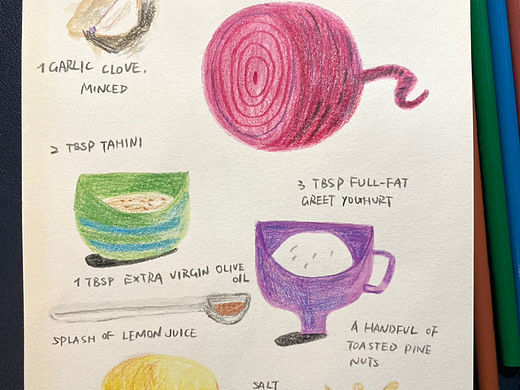 1 GARLIC CLOVE,
MINCED
2 TBSP TAHINI
3 TBSP FULL-FAT
GREET YOUHURT
1 TBSP EXTRA VIRGIN OLIVE
OIL
SPLASH OF LEMON JUICE
A HANDFUL OF
TOASTED PINE
NUTS
SALT